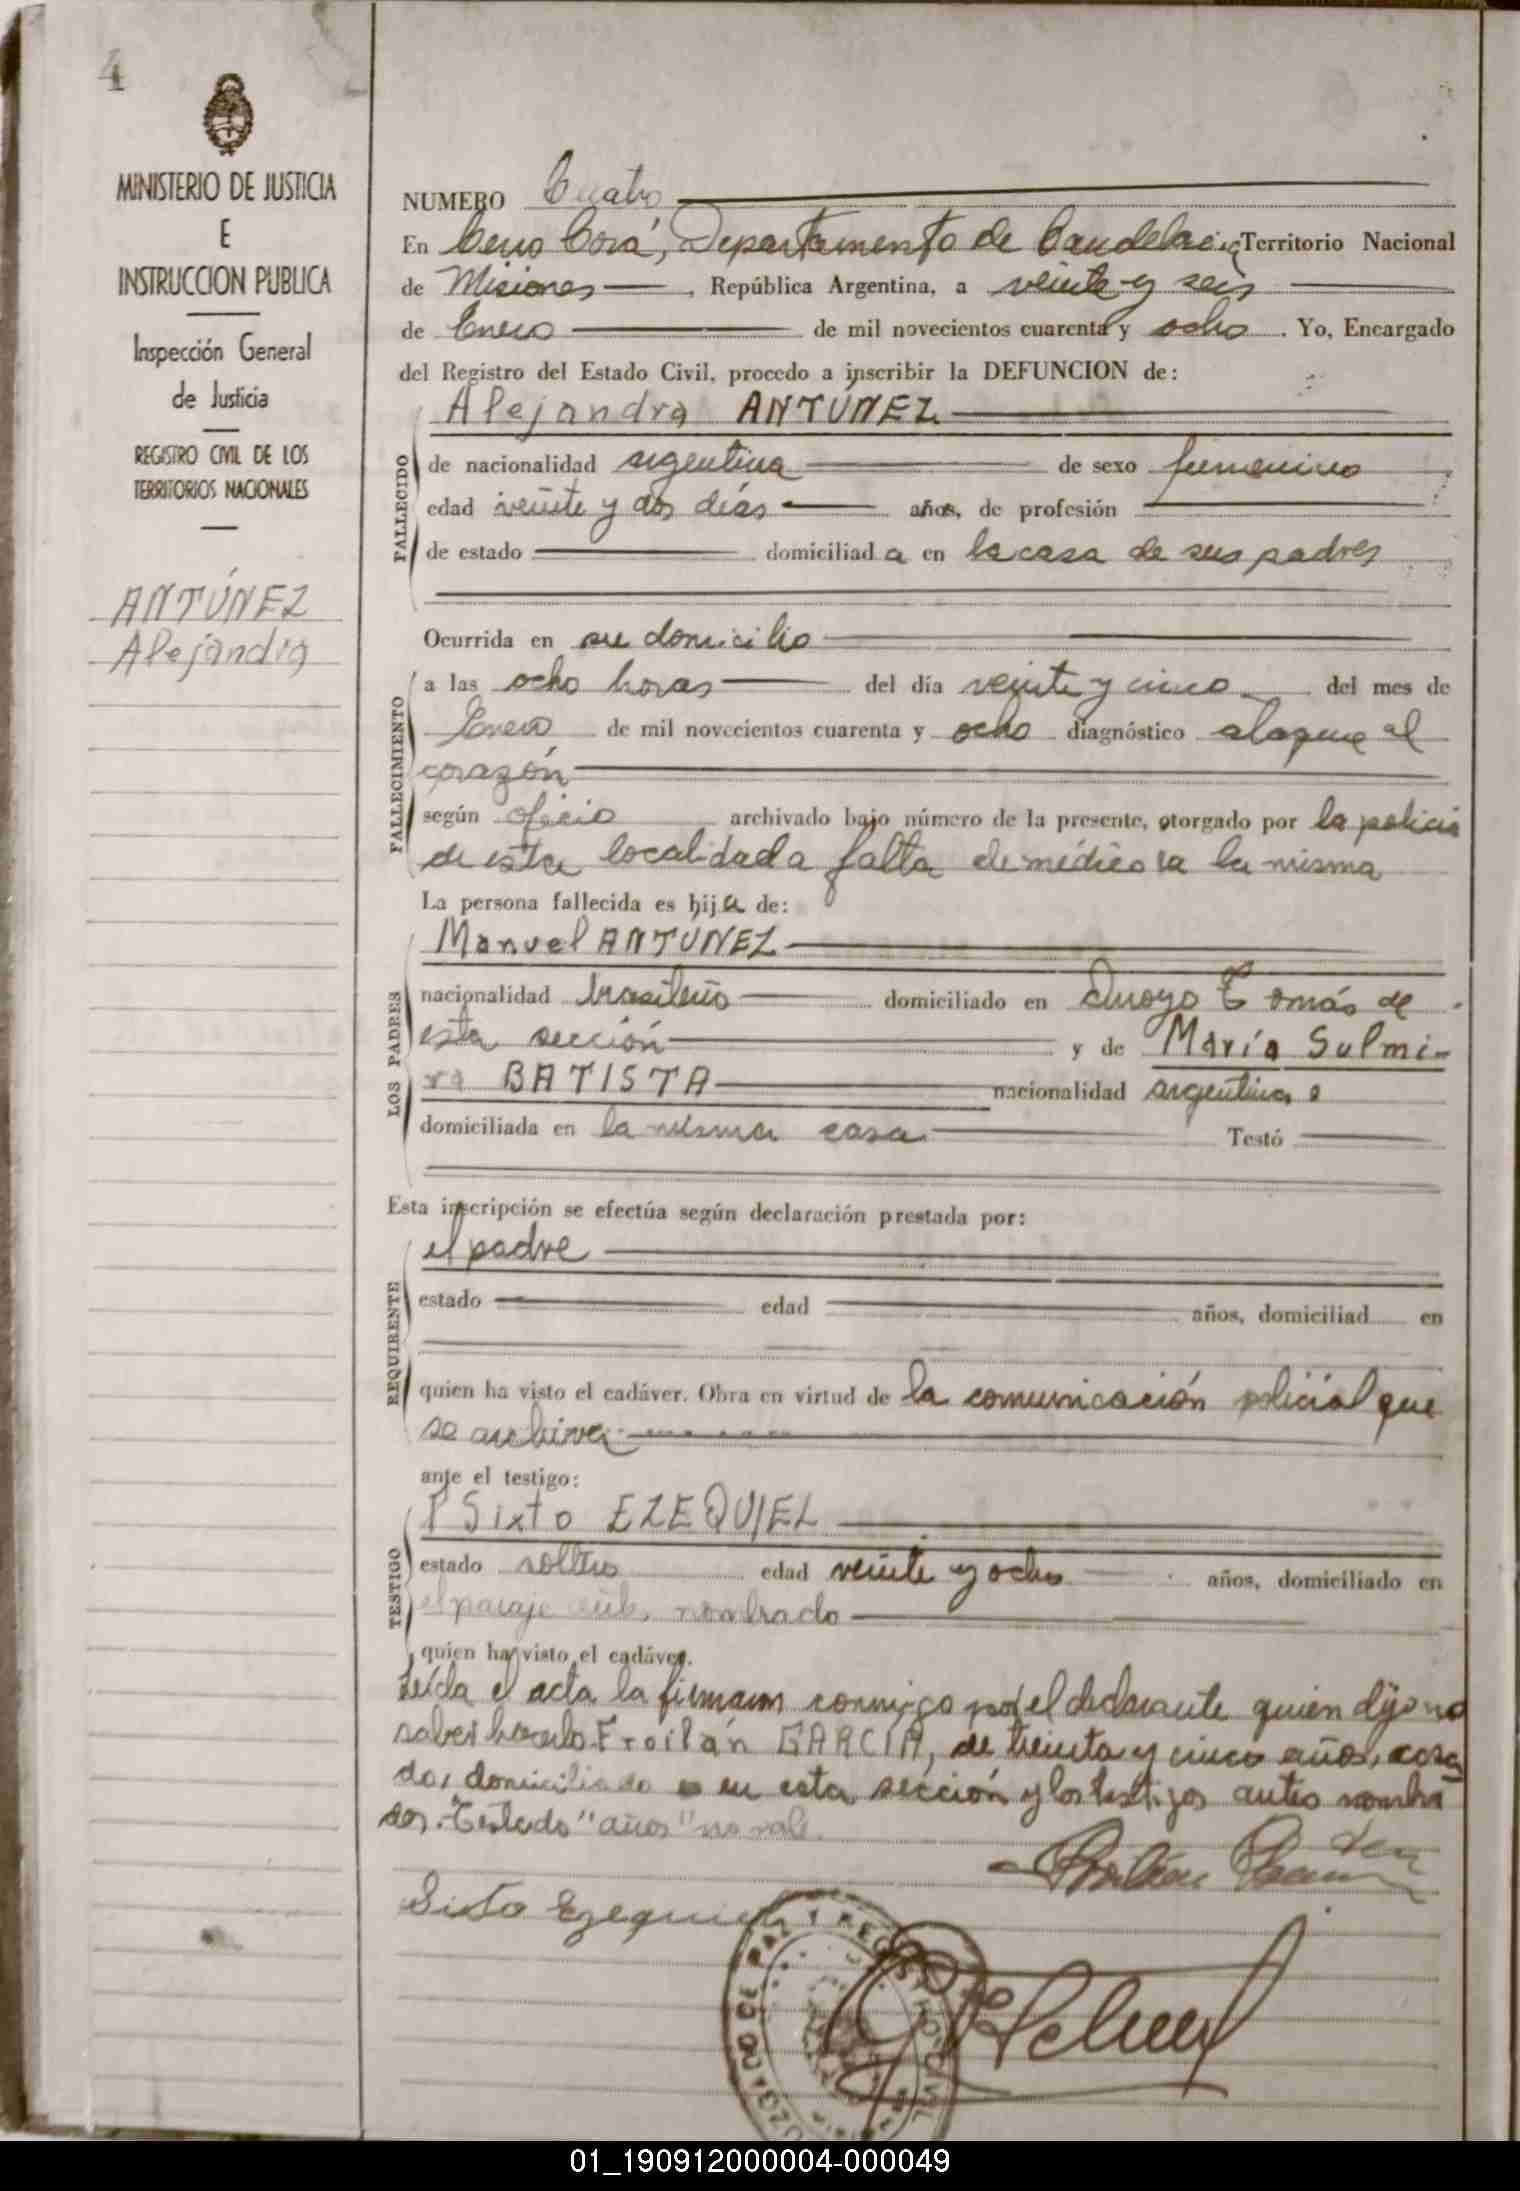 4
MINISTERIO DE JUSTICIA
E
INSTRUCCION PUBLICA
Inspección General
de Justicia
REGISTRO CIVIL DE LOS
TERRITORIOS NACIONALES
ANTÚNEZ
Alejandra
NUMERO Cuatro
En Cerro Corá, Departamento de Candelaria, Territorio Nacional
de Misiones, República Argentina, a veinte y seis
de Enero de mil novecientos cuarenta y ocho. Yo, Encargado
del Registro del Estado Civil, procedo a inscribir la DEFUNCION de:
Alejandra ANTÚNEZ
FALLECIDO
de nacionalidad argentina de sexo femenino
edad veinte y dos días años, de profesión
de estado domiciliada en la casa de sus padres
Ocurrida en su domicilio
FALLECIMIENTO
a las ocho horas del día veinte y cinco del mes de
Enero de mil novecientos cuarenta y ocho diagnóstico ataque al
corazón
según oficio archivado bajo número de la presente, otorgado por la policía
de esta localidad a falta de médico en la misma
La persona fallecida es hija de:
LOS PADRES
Manuel ANTUNEZ
nacionalidad brasileño domiciliado en Arroyo Tomás de
esta sección y de María Sulmi-
ra BATISTA nacionalidad argentina
domiciliada en la misma casa Testó
Esta inscripción se efectúa según declaración prestada por:
REQUIRENTE
el padre
estado edad años, domiciliad en
quien ha visto el cadáver. Obra en virtud de la comunicación policial que
se archiva
ante el testigo:
TESTIGO
Sixto EZEQUIEL
estado soltero edad veinte y ocho años, domiciliado en
el paraje nombrado
quien ha visto el cadáver.
Leída el acta la firman conmigo por el declarante quien dijo no
saber hacerlo Froilán GARCIA, de treinta y cinco años, casa
do, domiciliado en esta sección y los testigos antes nombra
dos. Testado "años" no vale.
Sisto Ezequiel
JUZGADO DE PAZ Y REGISTRO CIVIL
01_190912000004-000049